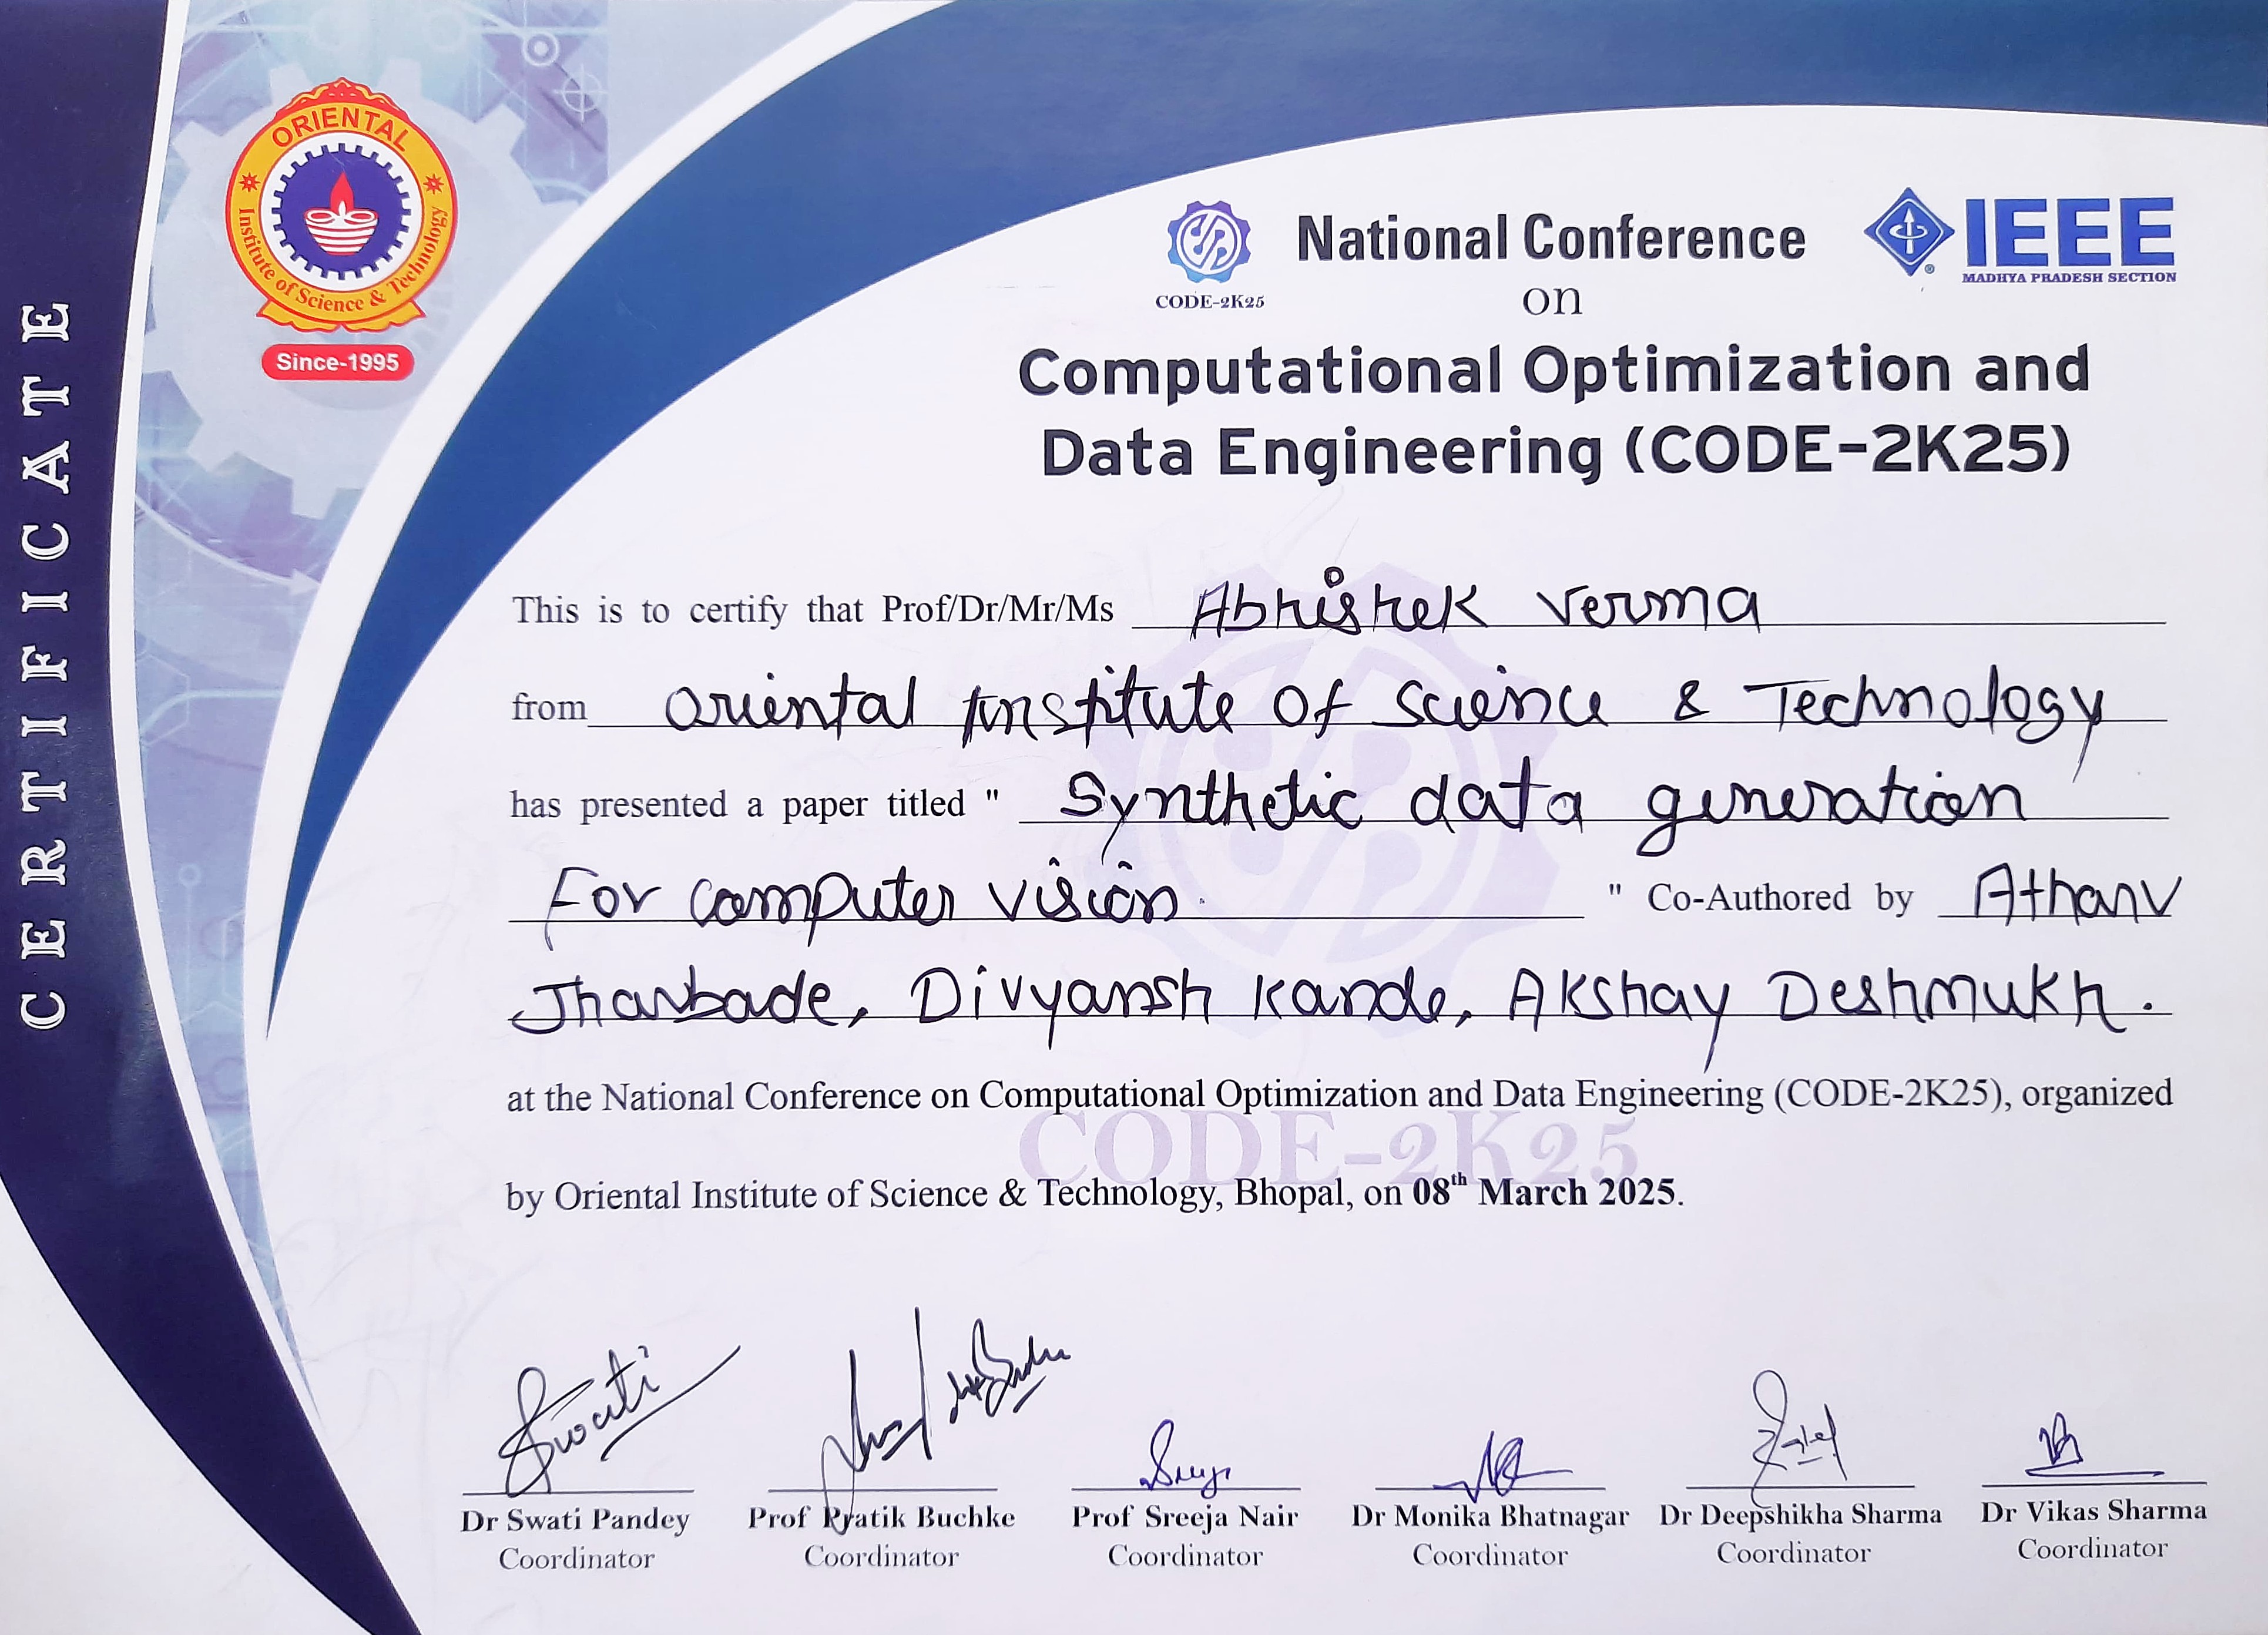 CERTIFICATE
ORIENTAL
Institute of Science & Technology
Since-1995
CODE-2K25
National Conference
IEEE
MADHYA PRADESH SECTION
on
Computational Optimization and
Data Engineering (CODE-2K25)
This is to certify that Prof/Dr/Mr/Ms Abhishek Verma
from Oriental Institute of Science & Technology
has presented a paper titled " Synthetic data generation
For computer vision. " Co-Authored by Atharv
Jharbade, Divyansh Kande, Akshay Deshmukh.
at the National Conference on Computational Optimization and Data Engineering (CODE-2K25), organized
CODE-2K25
by Oriental Institute of Science & Technology, Bhopal, on 08th March 2025.
Swati
Dr Swati Pandey
Coordinator
Prof Pratik Buchke
Coordinator
Prof Sreeja Nair
Coordinator
Dr Monika Bhatnagar
Coordinator
Dr Deepshikha Sharma
Coordinator
Dr Vikas Sharma
Coordinator